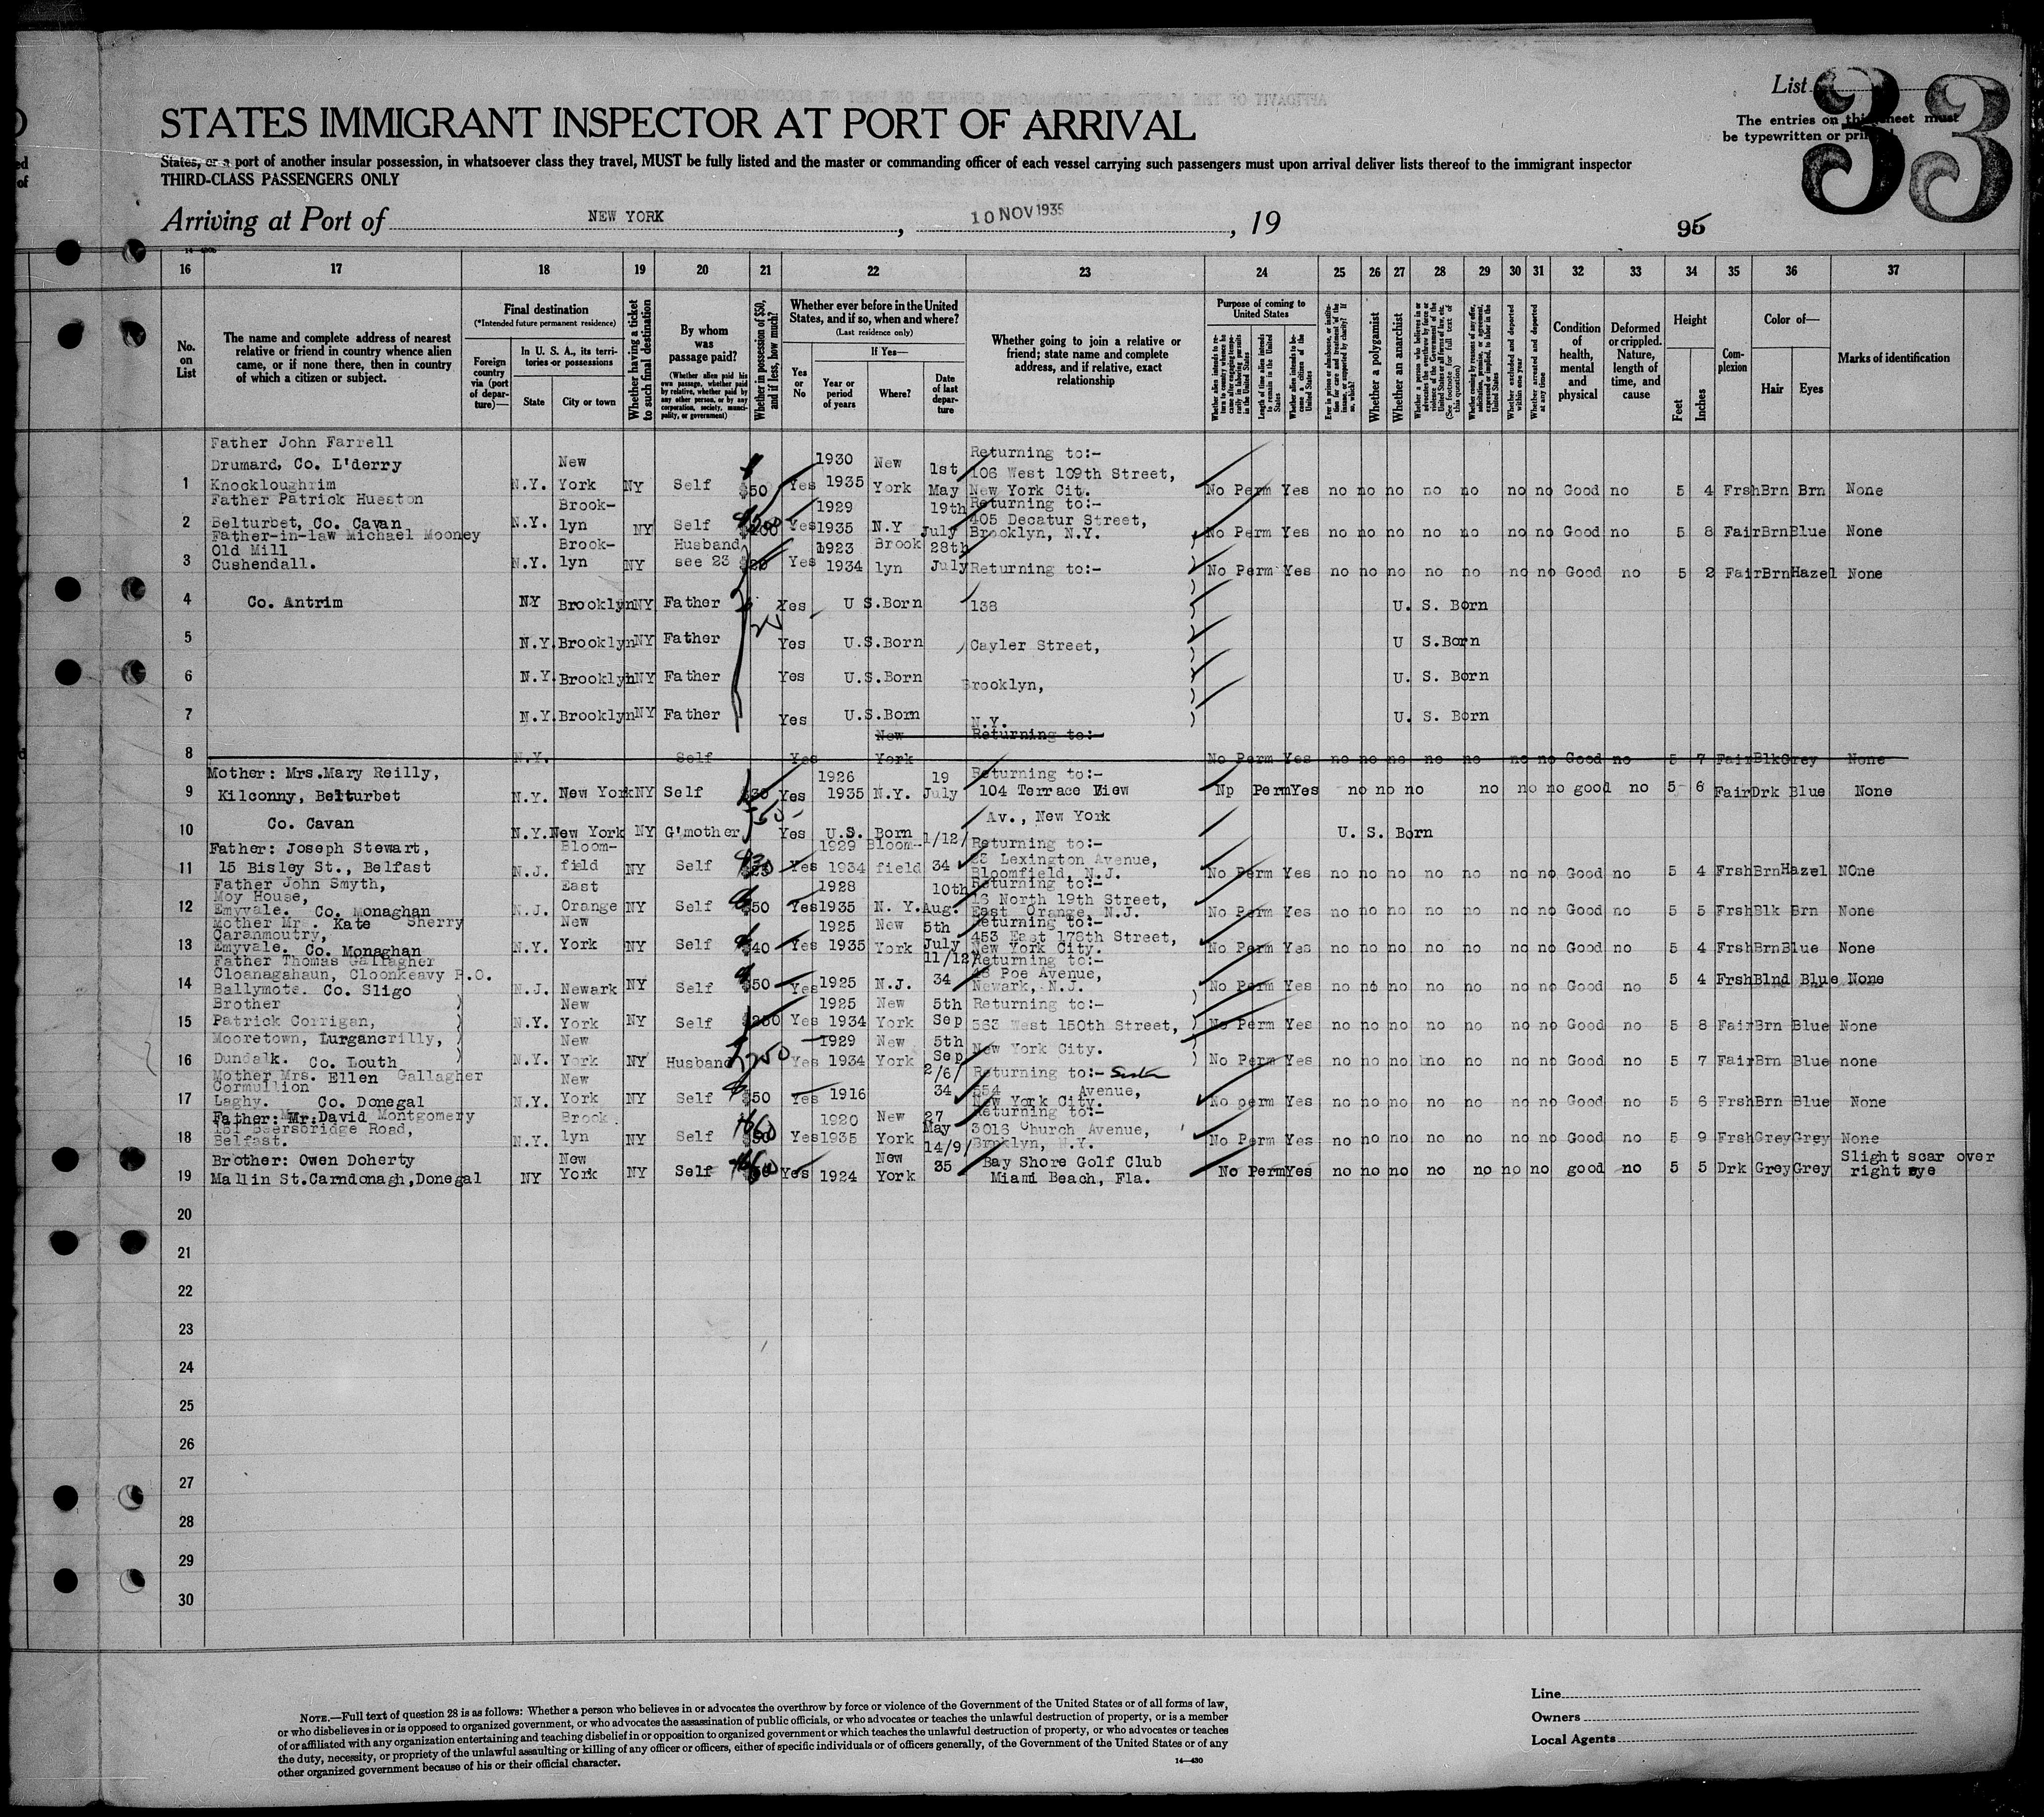 List
33
The entries on this sheet must
be typewritten or printed
STATES IMMIGRANT INSPECTOR AT PORT OF ARRIVAL
States, or a port of another insular possession, in whatsoever class they travel, MUST be fully listed and the master or commanding officer of each vessel carrying such passengers must upon arrival deliver lists thereof to the immigrant inspector
THIRD-CLASS PASSENGERS ONLY
Arriving at Port of NEW YORK, 10 NOV 1935, 19
95
16 17 18 19 20 21 22 23 24 25 26 27 28 29 30 31 32 33 34 35 36 37
No. on List
The name and complete address of nearest relative or friend in country whence alien came, or if none there, then in country of which a citizen or subject.
Final destination
(*Intended future permanent residence)
Foreign country via (port of departure)—
In U. S. A., its territories or possessions
State
City or town
Whether having a ticket to such final destination
By whom was passage paid?
(Whether alien paid his own passage, whether paid by relative, whether paid by any other person, or by any corporation, society, municipality, or government)
Whether in possession of $50, and if less, how much?
Whether ever before in the United States, and if so, when and where?
(Last residence only)
Yes or No
If Yes—
Year or period of years
Where?
Date of last departure
Whether going to join a relative or friend; state name and complete address, and if relative, exact relationship
Purpose of coming to United States
Whether alien intends to return to country whence he came after engaging temporarily in laboring pursuits in the United States
Length of time alien intends to remain in the United States
Whether alien intends to become a citizen of the United States
Ever in prison or almshouse, or institution for care and treatment of the insane, or supported by charity? If so, which?
Whether a polygamist
Whether an anarchist
(See footnote for full text of this question)
Whether coming by reason of any offer, solicitation, promise, or agreement, expressed or implied, to labor in the United States
Whether excluded and deported within one year
Whether arrested and deported at any time
Condition of health, mental and physical
Deformed or crippled. Nature, length of time, and cause
Height
Feet
Inches
Complexion
Color of—
Hair
Eyes
Marks of identification
Father John Farrell
Drumard, Co. L'derry
1 Knockloughrim N.Y. New York NY Self $50 Yes 1930 1935 New York 1st May Returning to:- 106 West 109th Street, New York Cit. No Perm Yes no no no no no no no Good no 5 4 Frsh Brn Brn None
Father Patrick Hueston
2 Belturbet, Co. Cavan N.Y. Brook-lyn NY Self $200 Yes 1929 1935 N.Y 19th July Returning to:- 405 Decatur Street, Brooklyn, N.Y. No Perm Yes no no no no no no no Good no 5 8 Fair Brn Blue None
Father-in-law Michael Mooney
Old Mill
3 Cushendall. N.Y. Brook-lyn NY Husband see 23 Yes 1923 1934 Brook lyn 28th July Returning to:- No Perm Yes no no no no no no no Good no 5 2 Fair Brn Hazel None
4 Co. Antrim NY Brooklyn NY Father Yes U S.Born 138 U. S. Born
5 N.Y. Brooklyn NY Father Yes U.S.Born Cayler Street, U S.Born
6 N.Y. Brooklyn NY Father Yes U.S.Born Brooklyn, U. S. Born
7 N.Y. Brooklyn NY Father Yes U.S.Born N.Y. U. S. Born
8 N.Y. Self Yes New York Returning to:- No Perm Yes no no no no no no no Good no 5 7 Fair Blk Grey None
Mother: Mrs.Mary Reilly,
9 Kilconny, Belturbet N.Y. New York NY Self $30 Yes 1926 1935 N.Y. 19 July Returning to:- 104 Terrace View Np Perm Yes no no no no no no good no 5 6 Fair Drk Blue None
10 Co. Cavan N.Y. New York NY G'mother 50- Yes U.S. Born Av., New York U. S. Born
Father: Joseph Stewart,
11 15 Bisley St., Belfast N.J. Bloom-field NY Self Yes 1929 1934 Bloom-field 1/12/34 Returning to:- 23 Lexington Avenue, Bloomfield, N.J. No Perm Yes no no no no no no no Good no 5 4 Frsh Brn Hazel NOne
Father John Smyth,
Moy House,
12 Emyvale. Co. Monaghan N.J. East Orange NY Self $50 Yes 1928 1935 N. Y. 10th Aug. Returning to:- 16 North 19th Street, East Orange, N.J. No Perm Yes no no no no no no no Good no 5 5 Frsh Blk Brn None
Mother Mr. Kate Sherry
Caranmoutry,
13 Emyvale. Co. Monaghan N.Y. New York NY Self $40 Yes 1925 1935 New York 5th July Returning to:- 453 East 178th Street, New York City. No Perm Yes no no no no no no no Good no 5 4 Frsh Brn Blue None
Father Thomas Gallagher
Cloanagahaun, Cloonkeavy P.O.
14 Ballymote. Co. Sligo N.J. Newark NY Self $50 Yes 1925 N.J. 11/12/34 Returning to:- 48 Poe Avenue, Newark, N.J. No Perm Yes no no no no no no no Good no 5 4 Frsh Blnd Blue None
Brother
15 Patrick Corrigan, N.Y. New York NY Self $250 Yes 1925 1934 New York 5th Sep Returning to:- 563 West 150th Street, No Perm Yes no no no no no no no Good no 5 8 Fair Brn Blue None
Mooretown, Lurgancrilly,
16 Dundalk. Co. Louth N.Y. New York NY Husband 250 Yes 1929 1934 New York 5th Sep New York City. No Perm Yes no no no no no no no Good no 5 7 Fair Brn Blue none
Mother Mrs. Ellen Gallagher
Cormullion
17 Laghy. Co. Donegal N.Y. New York NY Self $50 Yes 1916 2/6/34 Returning to:- Sister 554 Avenue, New York City. No perm Yes no no no no no no no Good no 5 6 Frsh Brn Blue None
Father: Mr: David Montgomery
181 Beersbridge Road,
18 Belfast. N.Y. Brook lyn NY Self 60 Yes 1920 1935 New York 27 May Returning to:- 3016 Church Avenue, Brooklyn, N.Y. No Perm Yes no no no no no no no Good no 5 9 Frsh Grey Grey None
Brother: Owen Doherty
19 Mallin St.Carndonagh,Donegal NY New York NY Self 60 Yes 1924 New York 14/9/35 Bay Shore Golf Club Miami Beach, Fla. No Perm Yes no no no no no no no good no 5 5 Drk Grey Grey Slight scar over right eye
20
21
22
23
24
25
26
27
28
29
30
NOTE.—Full text of question 28 is as follows: Whether a person who believes in or advocates the overthrow by force or violence of the Government of the United States or of all forms of law,
or who disbelieves in or is opposed to organized government, or who advocates the assassination of public officials, or who advocates or teaches the unlawful destruction of property, or is a member
of or affiliated with any organization entertaining and teaching disbelief in or opposition to organized government or which teaches the unlawful destruction of property, or who advocates or teaches
the duty, necessity, or propriety of the unlawful assaulting or killing of any officer or officers, either of specific individuals or of officers generally, of the Government of the United States or of any
other organized government because of his or their official character.
14—430
Line
Owners
Local Agents